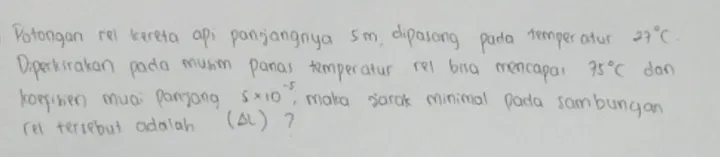 Potongan rel kereta api panjangnya 5m, dipasang pada temperatur 27°C.
Diperkirakan pada musim panas temperatur rel bisa mencapai 75°C dan
koefisien muai panjang 5×10⁻⁵, maka jarak minimal pada sambungan
rel tersebut adalah (ΔL) ?